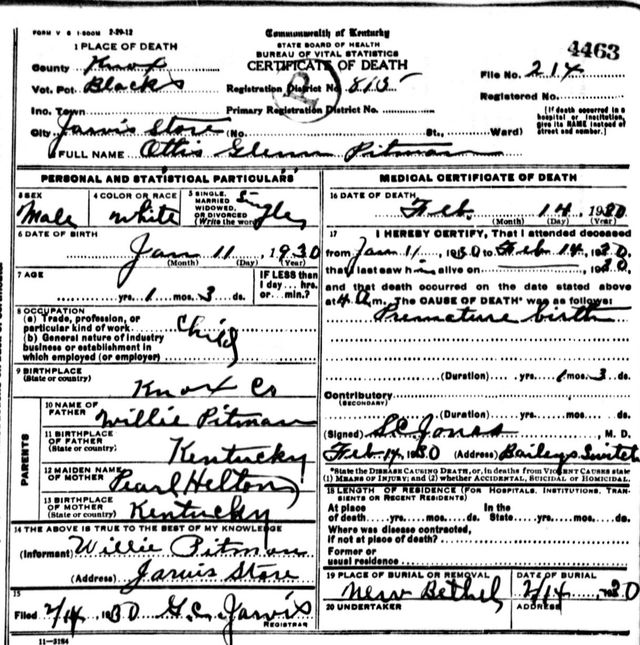 FORM V S 1-500M 2-29-12
Commonwealth of Kentucky
STATE BOARD OF HEALTH
BUREAU OF VITAL STATISTICS
CERTIFICATE OF DEATH
4463
1 PLACE OF DEATH
County Knox
Vot. Pct. Blacks
Registration District No. 815
File No. 214
Inc. Town
Primary Registration District No.
Registered No.
City Jarvis Store (No. St., Ward)
[If death occurred in a hospital or institution, give its NAME instead of street and number.]
2 FULL NAME Ottis Glenn Pitman
PERSONAL AND STATISTICAL PARTICULARS
3 SEX Male
4 COLOR OR RACE White
5 SINGLE, MARRIED WIDOWED, OR DIVORCED (Write the word) Single
6 DATE OF BIRTH
Jan 11, 1930
(Month) (Day) (Year)
7 AGE
yrs. 1 mos. 3 ds.
IF LESS than 1 day... hrs. or... min.?
8 OCCUPATION
(a) Trade, profession, or particular kind of work
(b) General nature of industry business or establishment in which employed (or employer)
Child
9 BIRTHPLACE
(State or country)
Knox Co
PARENTS
10 NAME OF FATHER Willie Pitman
11 BIRTHPLACE OF FATHER (State or country) Kentucky
12 MAIDEN NAME OF MOTHER Pearl Helton
13 BIRTHPLACE OF MOTHER (State or country) Kentucky
14 THE ABOVE IS TRUE TO THE BEST OF MY KNOWLEDGE
(Informant) Willie Pitman
(Address) Jarvis Store
15
Filed 2/14 1930 G.C. Jarvis
REGISTRAR
11-3184
MEDICAL CERTIFICATE OF DEATH
16 DATE OF DEATH
Feb. 14, 1930
(Month) (Day) (Year)
17 I HEREBY CERTIFY, That I attended deceased
from Jan 11, 1930 to Feb 14, 1930,
that I last saw him alive on 1930
and that death occurred on the date stated above
at 4 a m. The CAUSE OF DEATH* was as follows:
Premature birth
(Duration) yrs. 1 mos. 3 ds.
Contributory
(SECONDARY)
(Duration) yrs. mos. ds.
(Signed) S.C. Jones, M. D.
Feb 14 1930 (Address) Baileys Switch
*State the DISEASE CAUSING DEATH, or, in deaths from VIOLENT CAUSES state
(1) MEANS OF INJURY; and (2) whether ACCIDENTAL, SUICIDAL OR HOMICIDAL.
18 LENGTH OF RESIDENCE (FOR HOSPITALS, INSTITUTIONS, TRANSIENTS OR RECENT RESIDENTS)
At place of death yrs. mos. ds. In the State yrs. mos. ds.
Where was disease contracted, if not at place of death?
Former or usual residence
19 PLACE OF BURIAL OR REMOVAL
New Bethel
DATE OF BURIAL
2/14, 1930
20 UNDERTAKER
ADDRESS